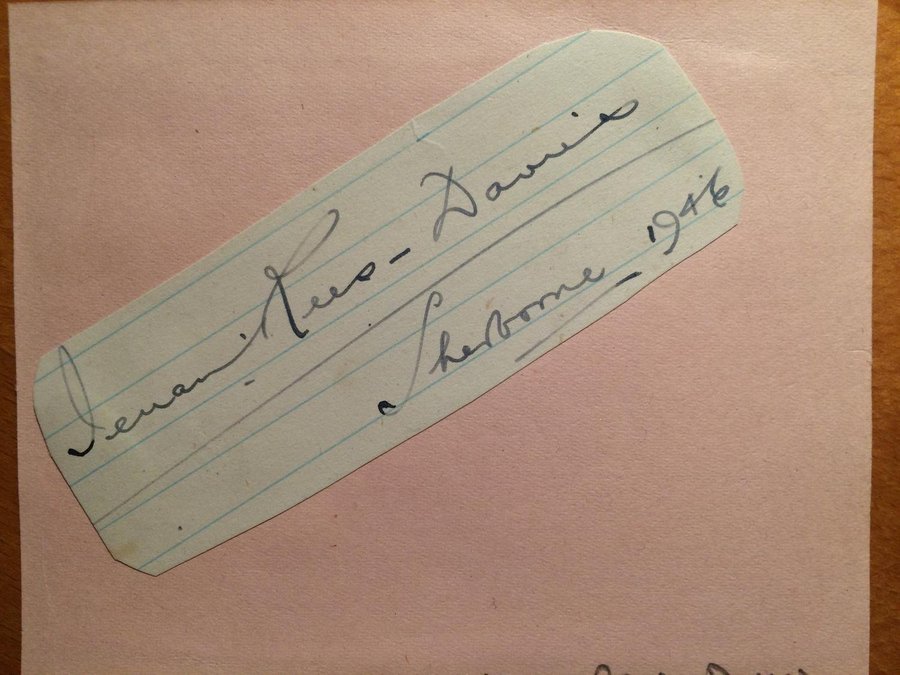 Ieuan Rees-Davies
Sherborne 1946